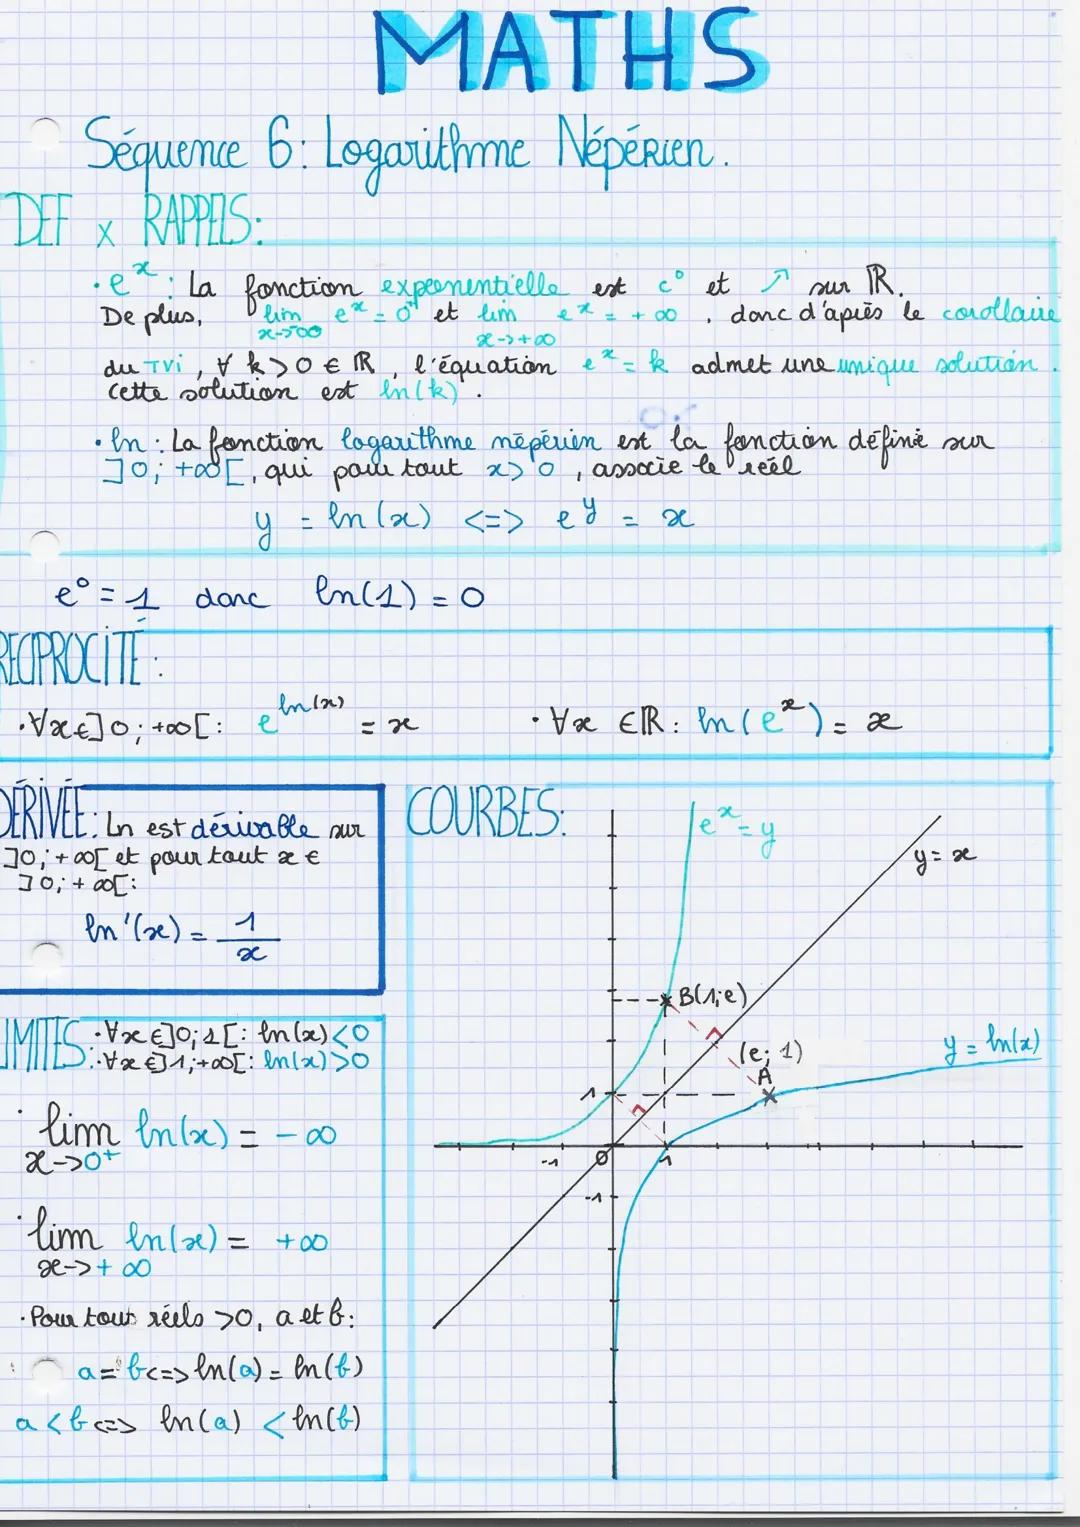 MATHS
Séquence 6: Logarithme Népérien.
DEF x RAPPELS:
• e^x : La fonction exponentielle est c° et ↗ sur ℝ.
De plus, lim e^x = 0^+ et lim e^x = +∞, donc d'après le corollaire
x->-∞ x->+∞
du TVi, ∀ k>0 ∈ ℝ, l'équation e^x = k admet une unique solution.
Cette solution est ln(k).
• ln : La fonction logarithme népérien est la fonction définie sur
]0; +∞[, qui pour tout x>0, associe le réel
y = ln(x) <=> e^y = x
e^0 = 1 donc ln(1) = 0
RECIPROCITÉ :
• ∀x∈]0; +∞[: e^ln(x) = x
• ∀x ∈ℝ: ln(e^x) = x
DÉRIVÉE: Ln est dérivable sur
]0; +∞[ et pour tout x ∈
]0; +∞[:
ln'(x) = 1/x
LIMITES: • ∀x∈]0;1[: ln(x)<0
• ∀x∈]1;+∞[: ln(x)>0
• lim ln(x) = -∞
x->0+
• lim ln(x) = +∞
x->+∞
• Pour tout réels >0, a et b:
a = b <=> ln(a) = ln(b)
a < b <=> ln(a) < ln(b)
COURBES:
e^x = y
y = x
B(1;e)
(e; 1)
A
y = ln(x)
1
-1
0
1
-1